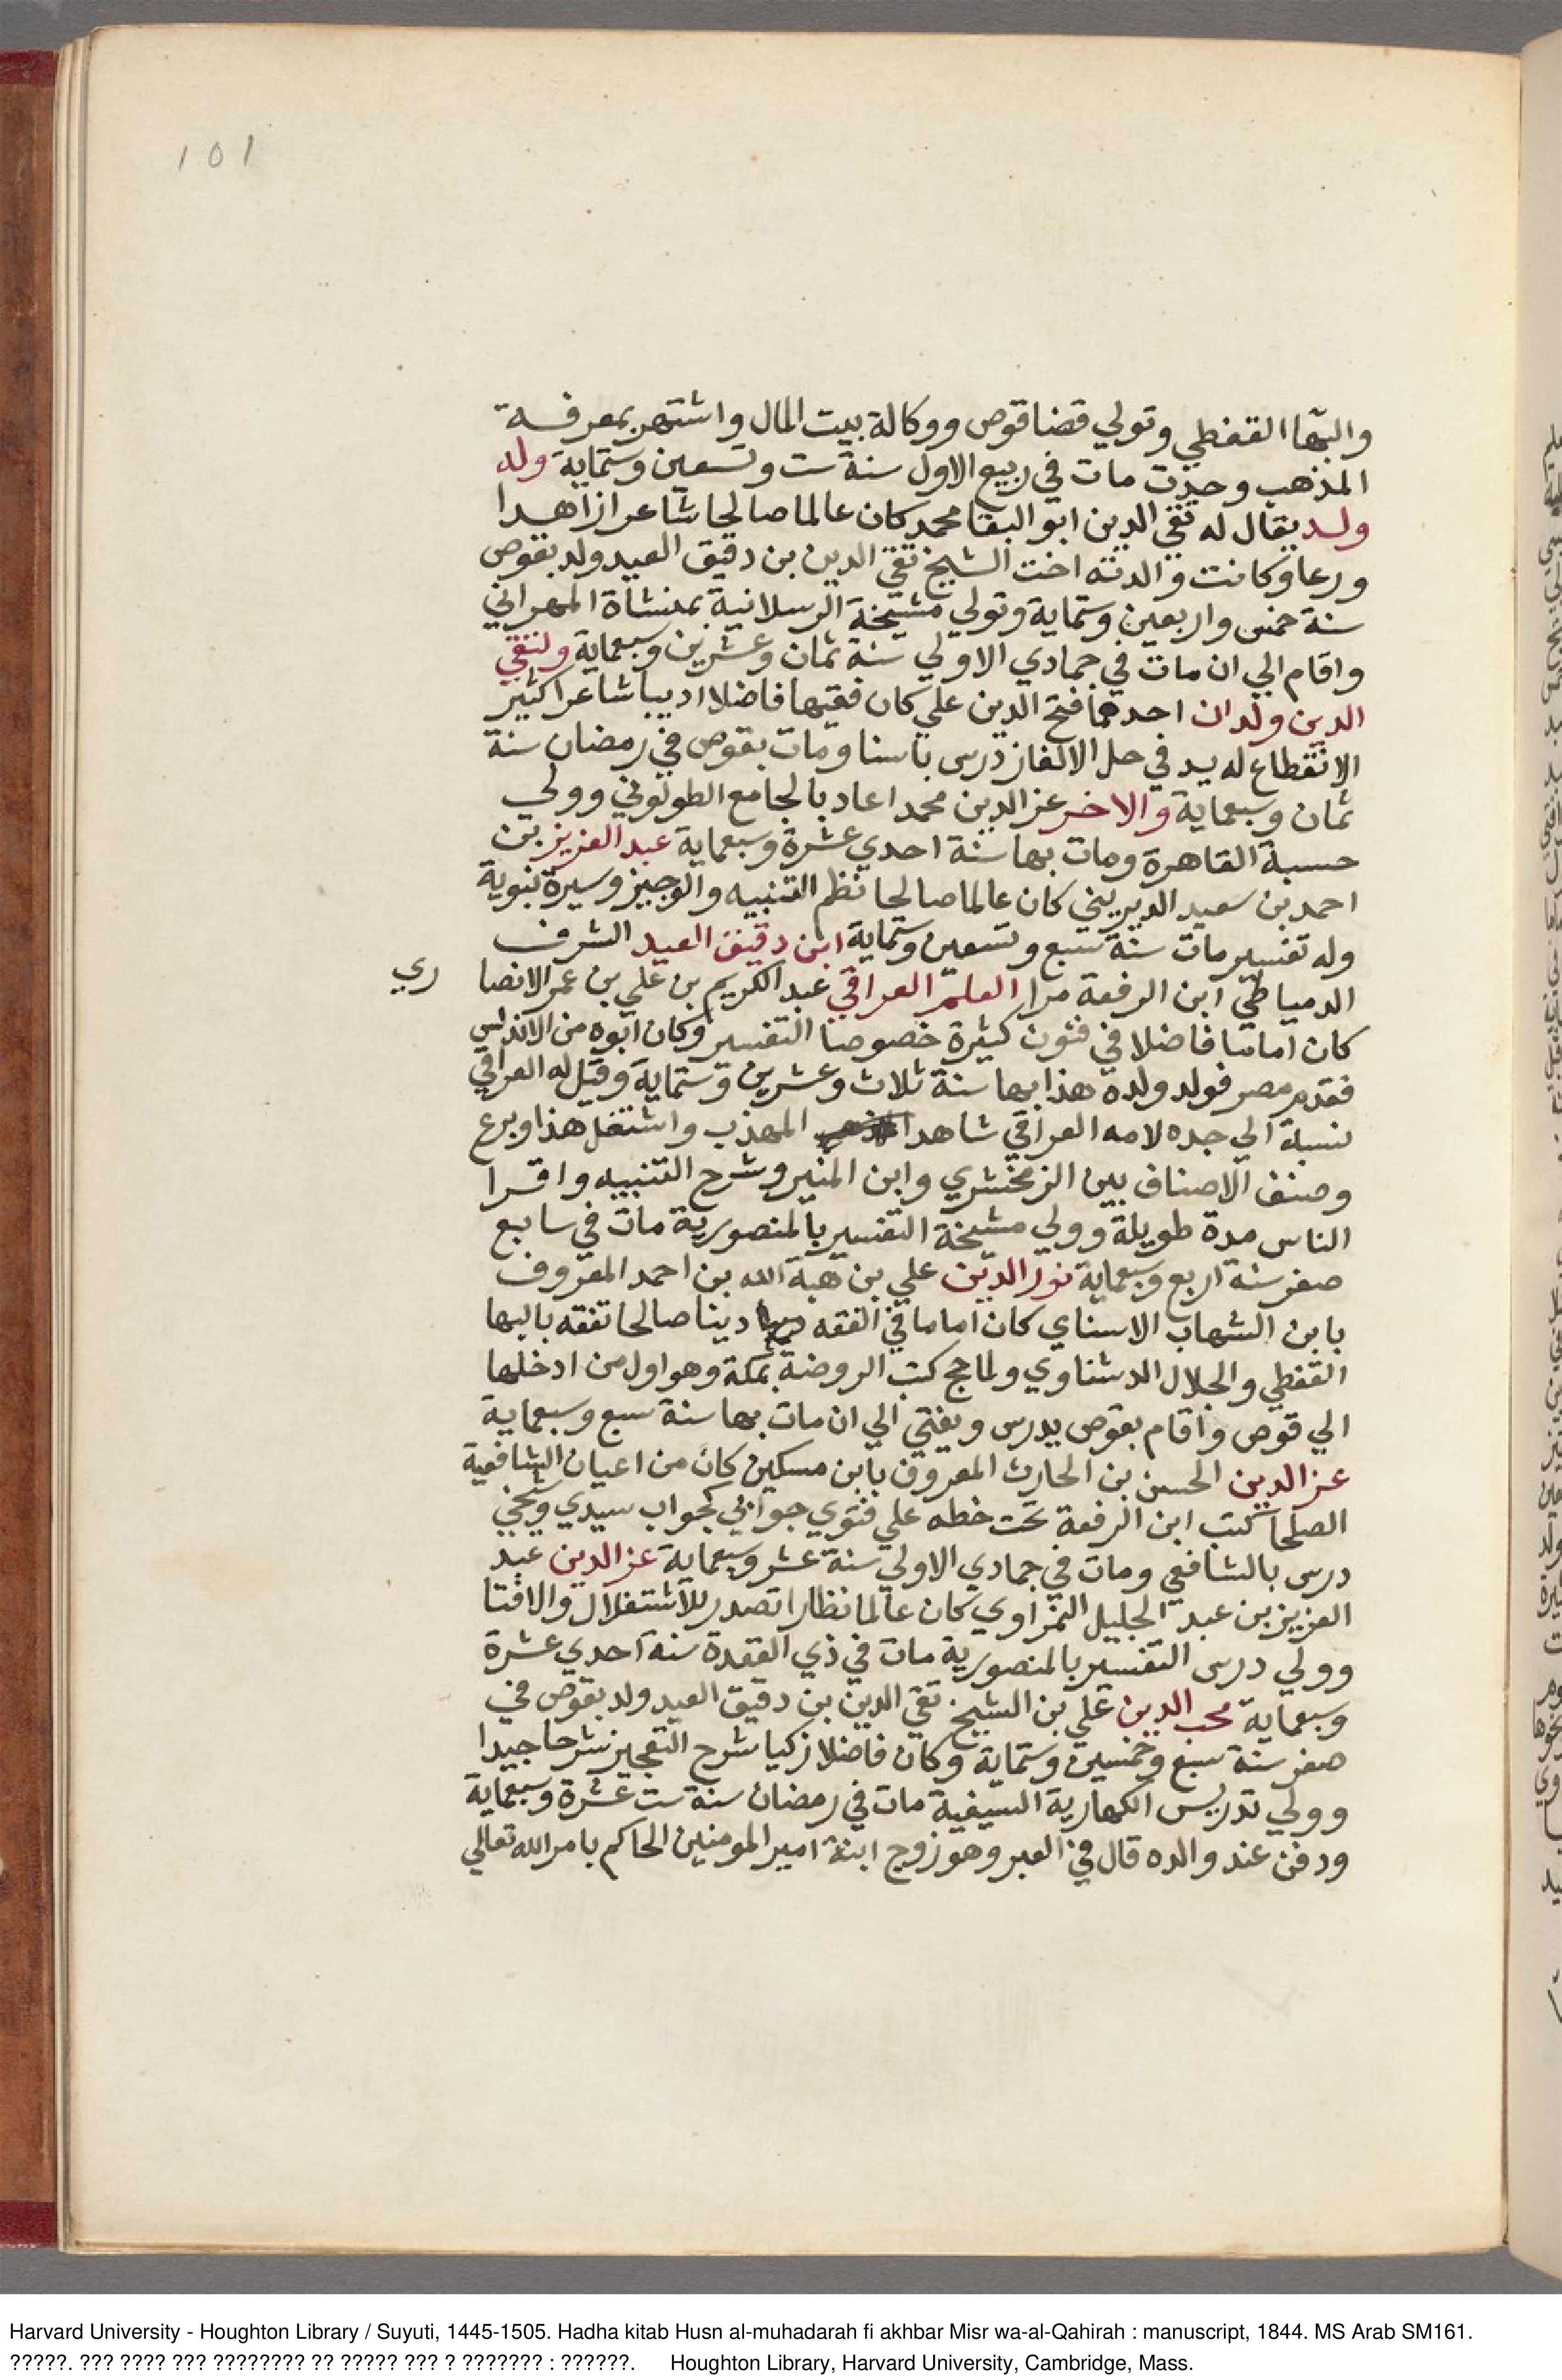 101
والبها القفطي وتولي قضا قوص ووكالة بيت المال واشتهر بمعرفة
المذهب وحدث مات في ربيع الاول سنة ست وتسعين وستماية وله
ولد يقال له تقي الدين ابو البقا محمد كان عالما صالحا شاعرا زاهدا
ورعا وكانت والدته اخت الشيخ تقي الدين بن دقيق العيد ولد بقوص
سنة خمس واربعين وستماية وتولي مشيخة الرسلانية بمنشاة المهراني
واقام الي ان مات في جمادي الاولي سنة ثمان وعشرين وسبعماية ولتقي
الدين ولدان احدهما فتح الدين علي كان فقيها فاضلا اديبا شاعرا كثير
الانقطاع له يد في حل الالغاز درس باسنا ومات بقوص في رمضان سنة
ثمان وسبعماية والاخر عز الدين محمد اعاد بالجامع الطولوني وولي
حسبة القاهرة ومات بها سنة احدي عشرة وسبعماية عبد العزيز بن
احمد بن سعيد الديريني كان عالما صالحا نظم التنبيه والوجيز وسيرة نبوية
وله تفسير مات سنة سبع وتسعين وستماية ابن دقيق العيد الشرف
الدمياطي ابن الرفعة مرا العلم العراقي عبد الكريم بن علي بن عمر الانصا ري
كان اماما فاضلا في فنون كثيرة خصوصا التفسير وكان ابوه من الاندلس
فقدم مصر فولد ولده هذا بها سنة ثلاث وعشرين وستماية وقيل له العراقي
نسبة الي جده لامه العراقي شاهد المهذب واشتغل هذا وبرع
وصنف الاصناف بين الزمخشري وابن المنير وشرح التنبيه واقرا
الناس مدة طويلة وولي مشيخة التفسير بالمنصورية مات في سابع
صفر سنة اربع وسبعماية نور الدين علي بن هبة الله بن احمد المعروف
بابن الشهاب الاسناي كان اماما في الفقه دينا صالحا تفقه بالبها
القفطي والجلال الدشناوي ولما حج كتب الروضة بمكة وهو اول من ادخلها
الي قوص واقام بقوص يدرس ويفتي الي ان مات بها سنة سبع وسبعماية
عز الدين الحسن بن الحارث المعروف بابن مسكين كان من اعيان الشافعية
الصلحا كتب ابن الرفعة تحت خطه علي فتوي جوابي كجواب سيدي وشيخي
درس بالشافعي ومات في جمادي الاولي سنة عشر وسبعماية عز الدين عبد
العزيز بن عبد الجليل النمراوي كان عالما نظارا تصدر للاشتغلال والافتا
وولي درس التفسير بالمنصورية مات في ذي القعدة سنة احدي عشرة
وسبعماية محب الدين علي بن الشيخ تقي الدين بن دقيق العيد ولد بقوص في
صفر سنة سبع وخمسين وستماية وكان فاضلا زكيا شرح التعجيز شرحا جيدا
وولي تدريس الكهارية السيفية مات في رمضان سنة ست عشرة وسبعماية
ودفن عند والده قال في العبر وهو زوج ابنة امير المومنين الحاكم بامر الله تعالي
Harvard University - Houghton Library / Suyuti, 1445-1505. Hadha kitab Husn al-muhadarah fi akhbar Misr wa-al-Qahirah : manuscript, 1844. MS Arab SM161.
?????. ??? ???? ??? ???????? ?? ????? ??? ? ??????? : ??????. Houghton Library, Harvard University, Cambridge, Mass.